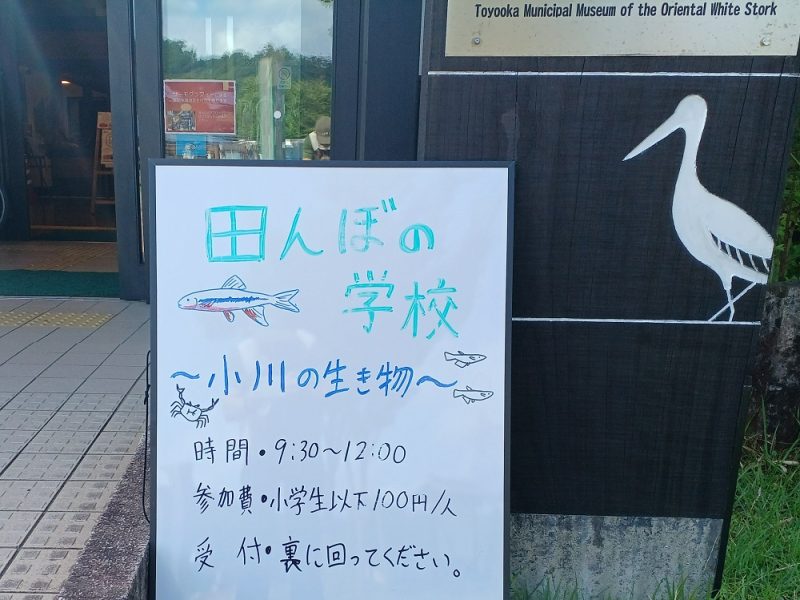 Toyooka Municipal Museum of the Oriental White Stork
田んぼの
学校
～小川の生き物～
時間・9:30～12:00
参加費・小学生以下100円/人
受付・裏に回ってください。